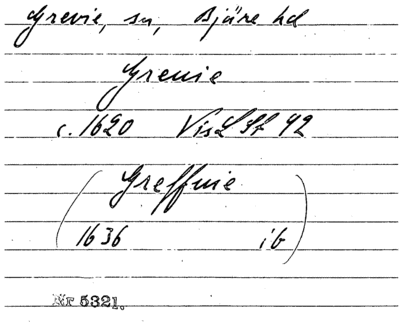 Grevie, sn, Bjäre hd
Grevie
c. 1620 VisL St 42
(Greffuie
1636 ib)
Nr 5321.